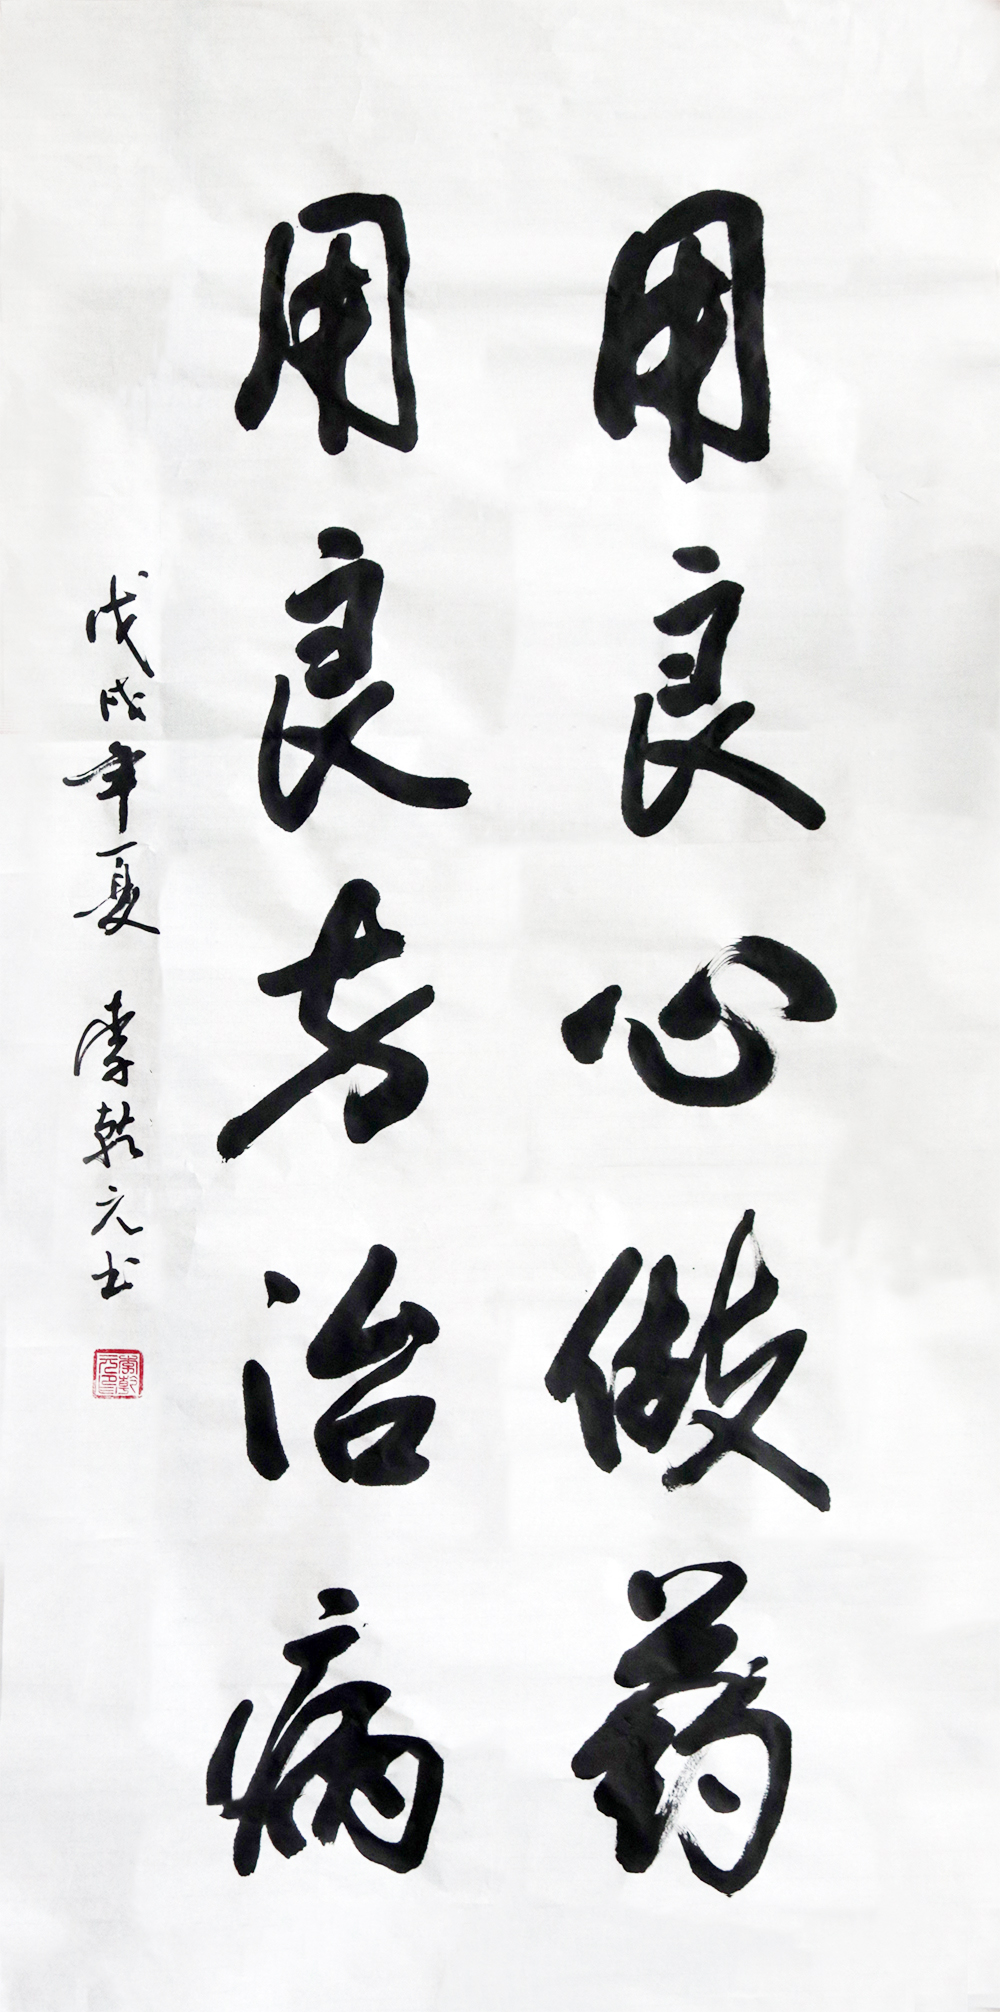 用良心做药
用良方治病
戊戌年夏 李乾元书
李乾元印